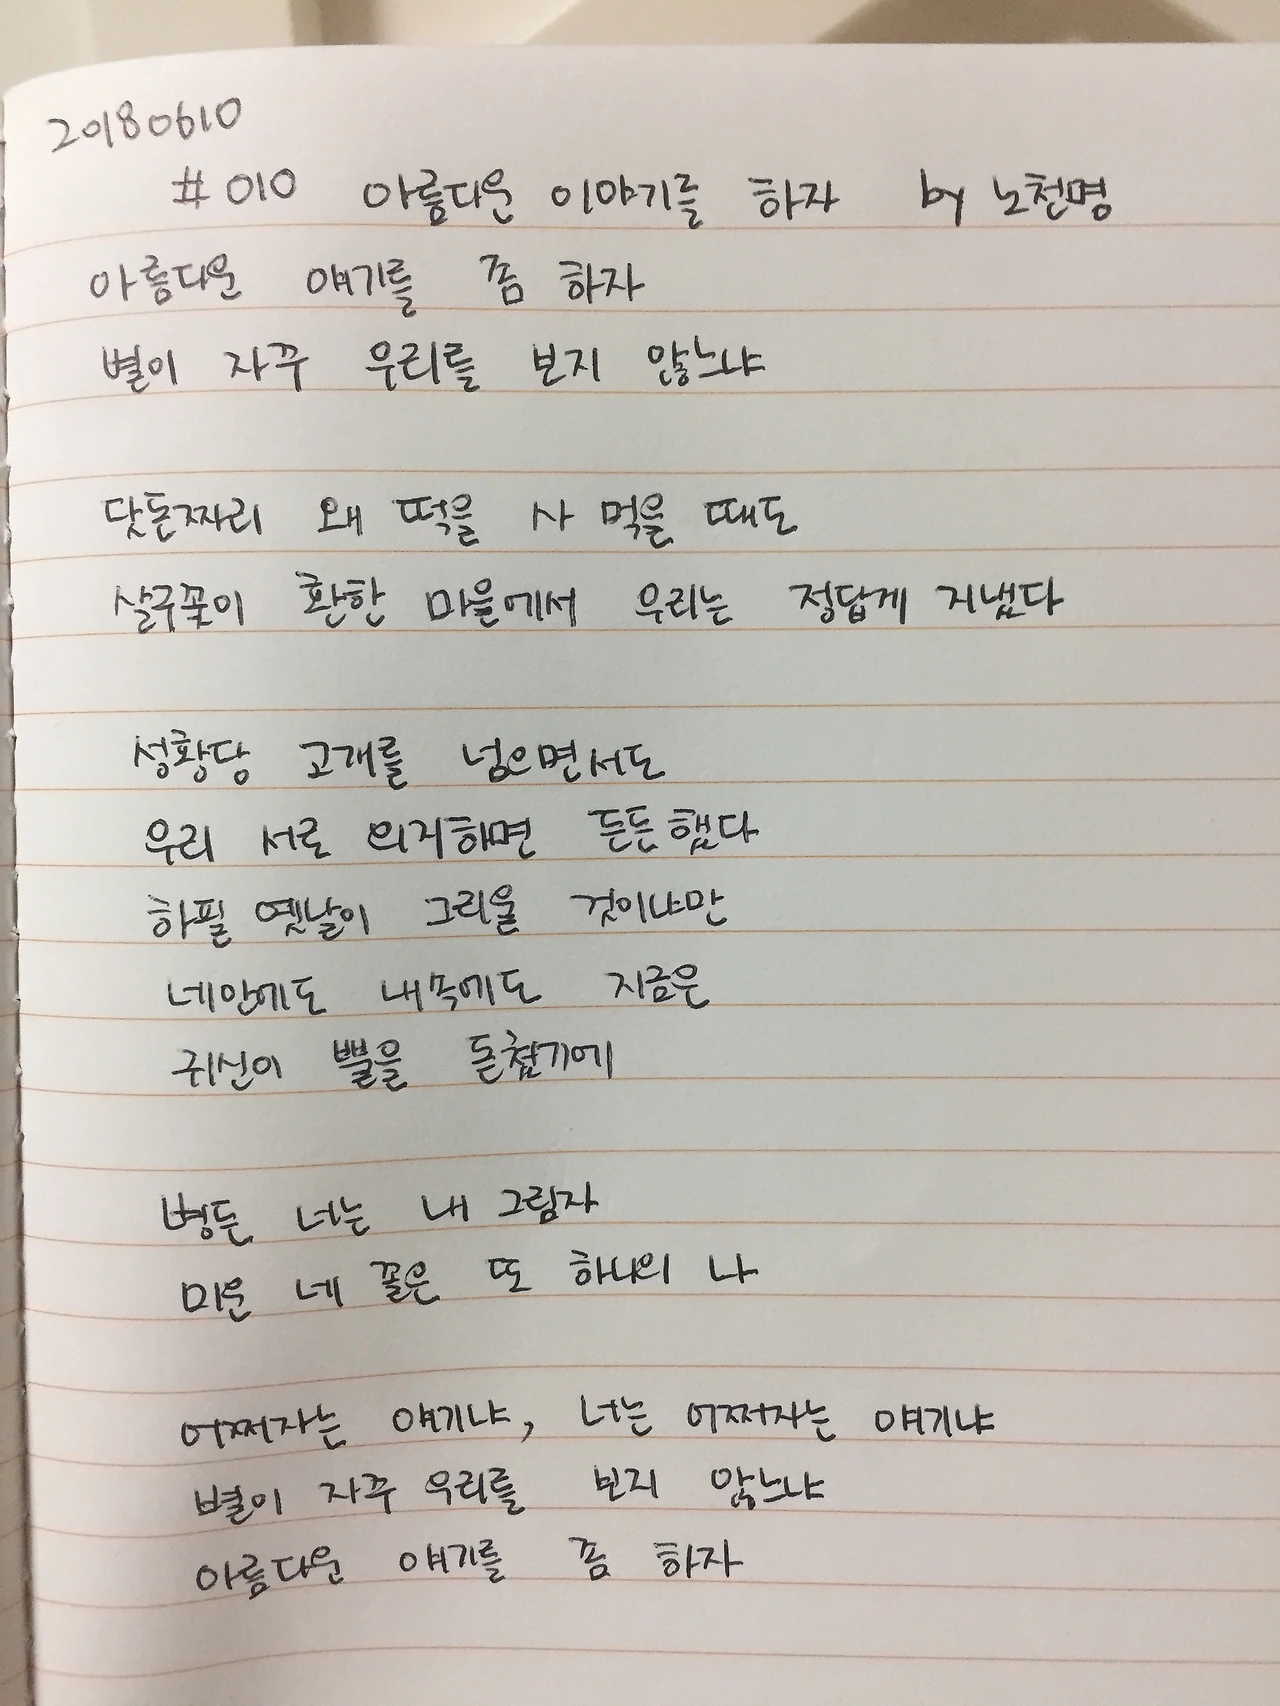 20180610
#010 아름다운 이야기를 하자 by 노천명
아름다운 얘기를 좀 하자
별이 자꾸 우리를 보지 않느냐
닷돈짜리 왜떡을 사 먹을 때도
살구꽃이 환한 마을에서 우리는 정답게 지냈다
성황당 고개를 넘으면서도
우리 서로 의지하면 든든했다
하필 옛날이 그리울 것이냐만
네안에도 내속에도 지금은
귀신이 뿔을 돋쳤기에
병든 너는 내 그림자
미운 네 꼴은 또 하나의 나
어쩌자는 얘기냐, 너는 어쩌자는 얘기냐
별이 자꾸 우리를 보지 않느냐
아름다운 얘기를 좀 하자